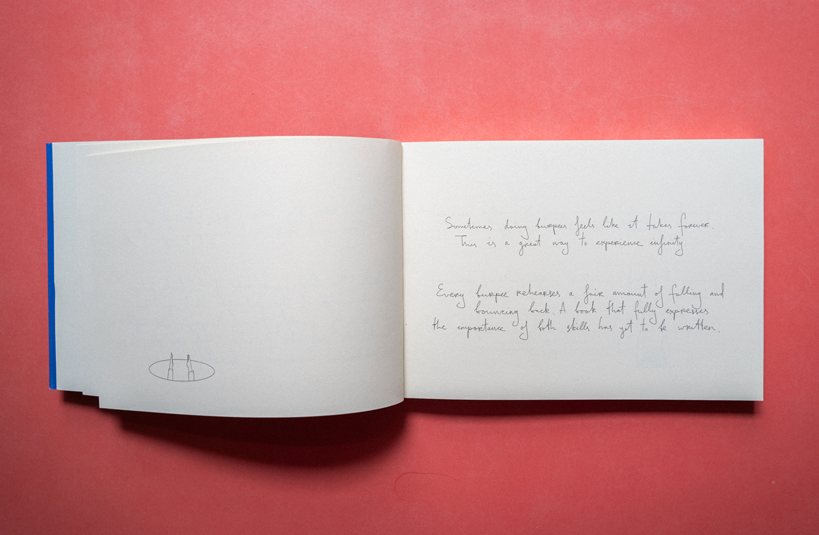 Sometimes doing burpees feels like it takes forever.
This is a great way to experience infinity
Every burpee rehearses a fair amount of falling and
bouncing back. A book that fully expresses
the importance of both skills has yet to be written.